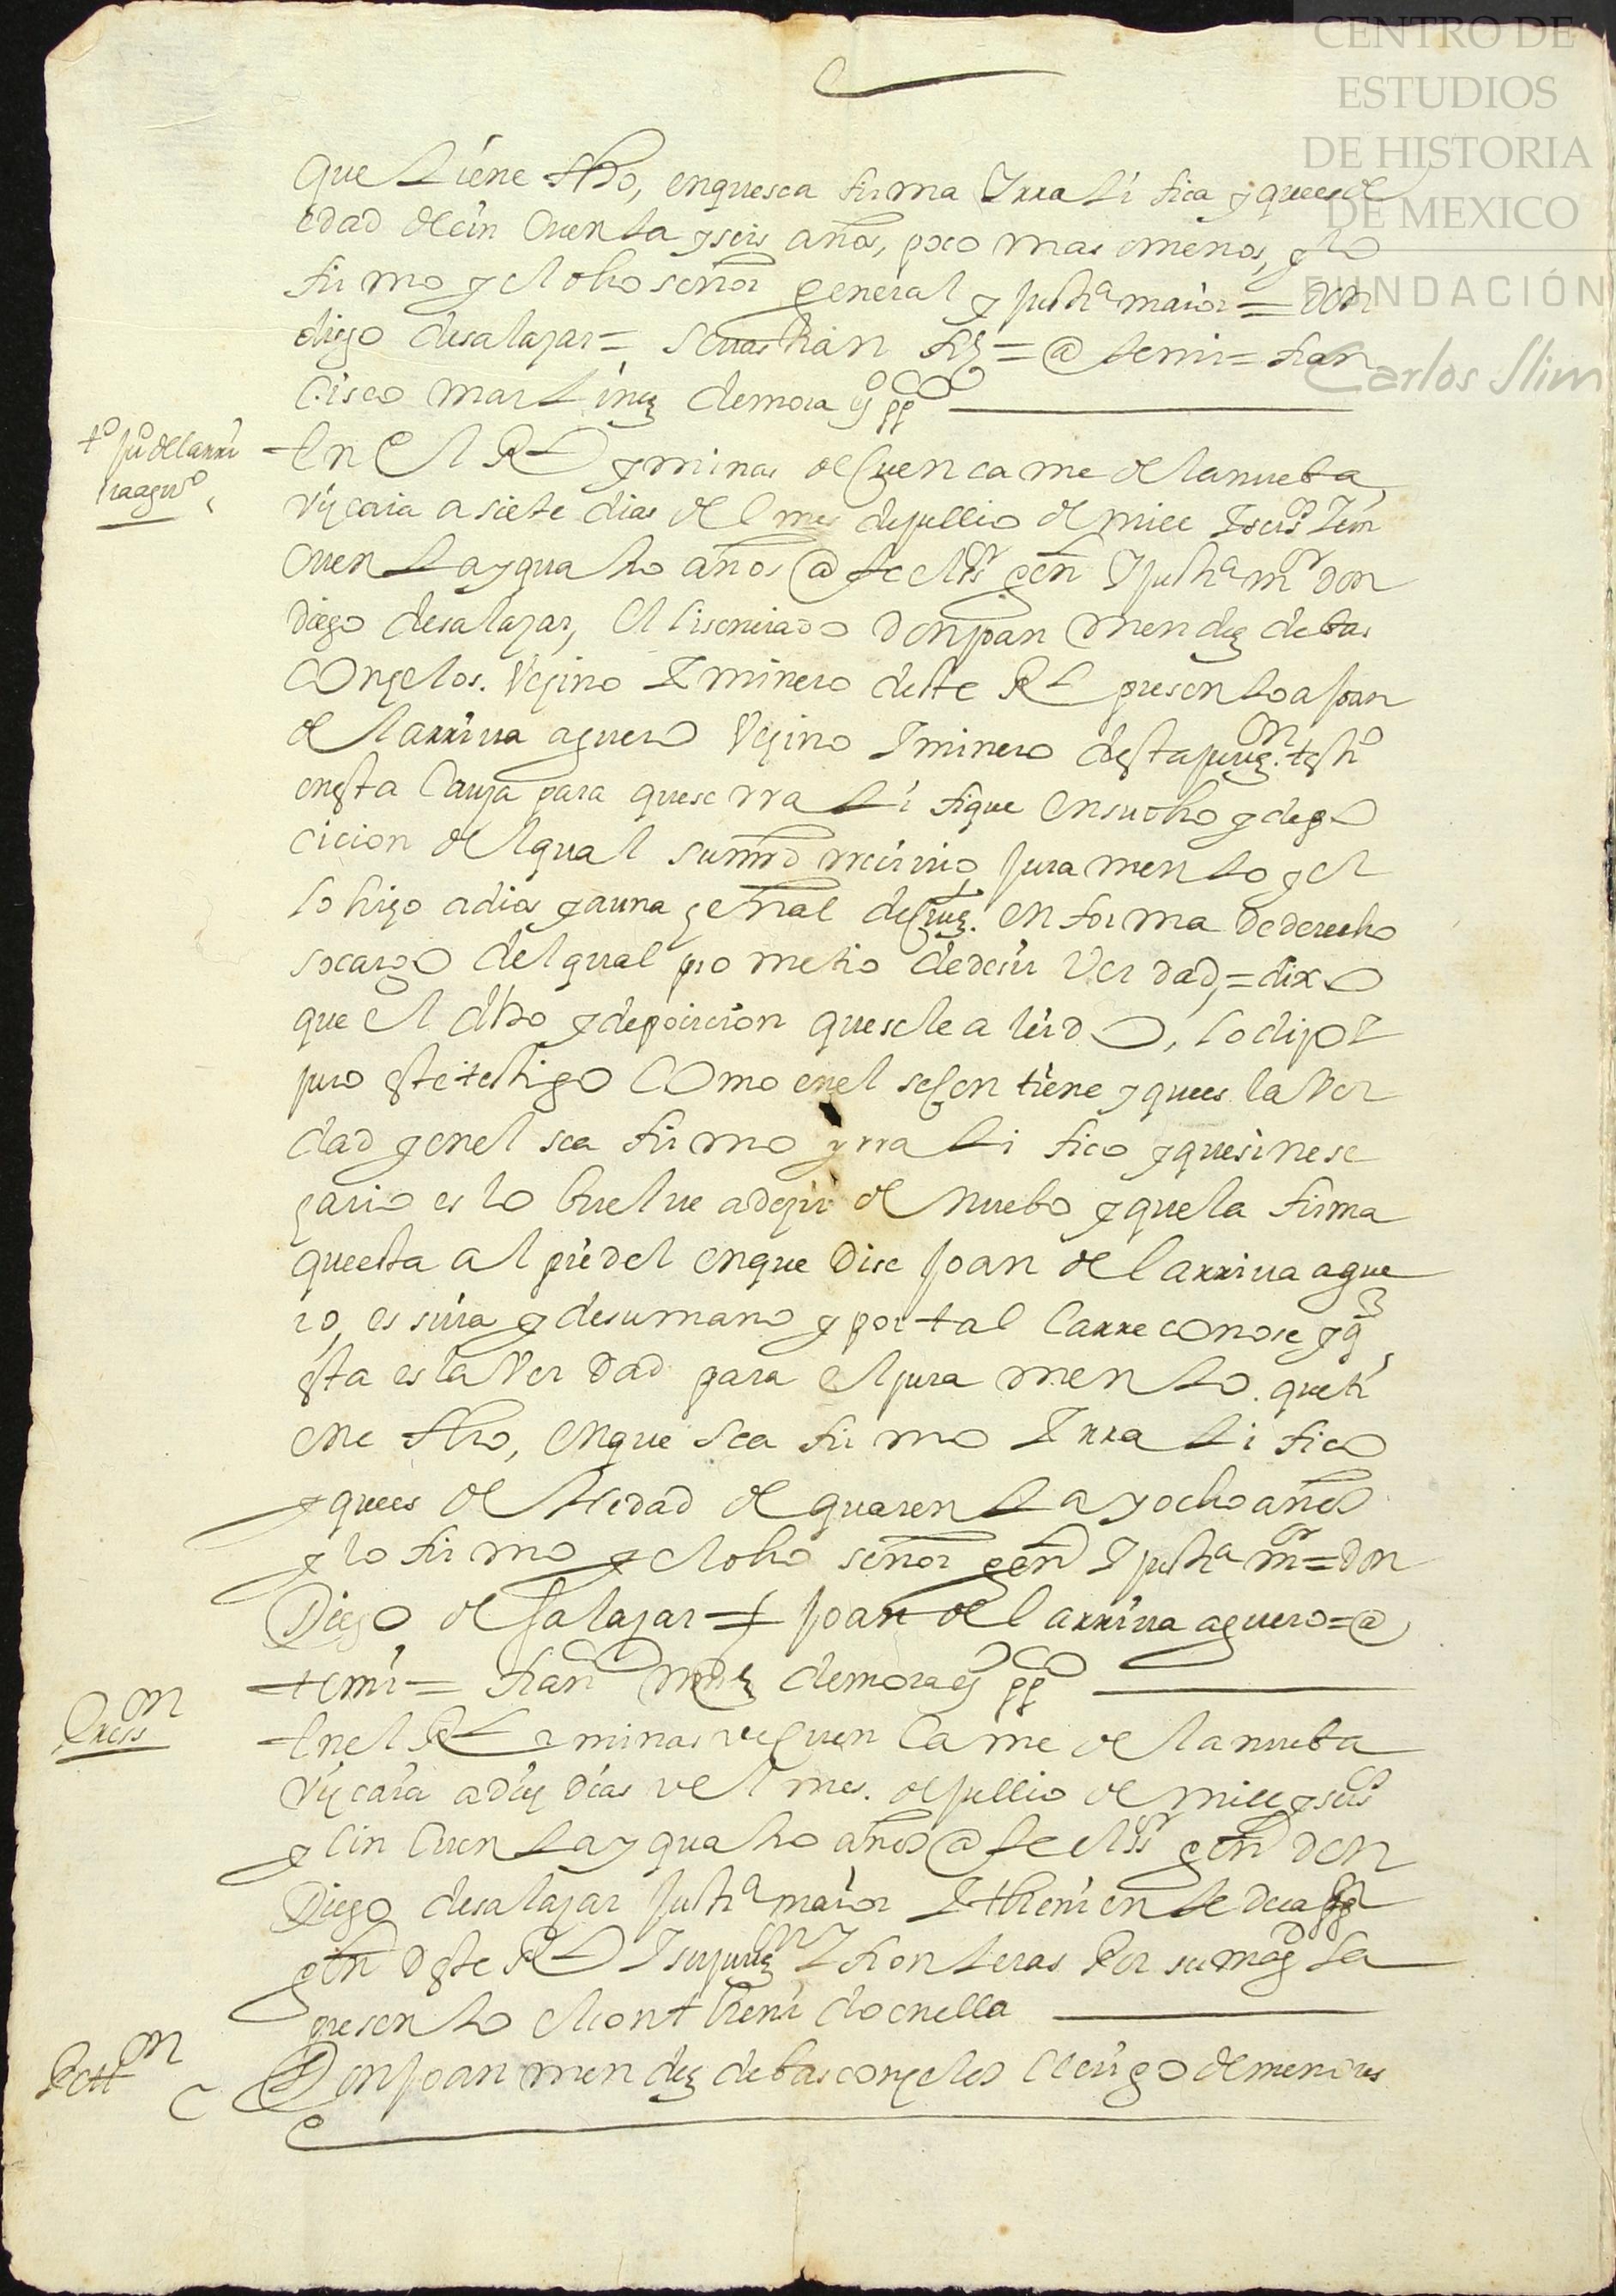 CENTRO DE
ESTUDIOS
DE HISTORIA
DE MEXICO
FUNDACIÓN
Carlos Slim
que tiene dho, enquesea firma Yrratifica y quees de
edad de cin cuenta y seis años, poco mas omenos, y lo
firmo y el dho señor general y justa maior = don
diego desalazar = sevastian = @ temi = fran
cisco martinez demora ppco
to ju de larri
va aguro
En el Rl y minas de Cuencame de la nueba
vizcaia a siete dias del mes dejullio de mill Y seisos Y cin
cuenta y quatro años @ te el sr gen Y justa mor don
Diego desalazar, el lisenciado don joan mendez debas
conzelos. vezino Y minero deste Rl presento a joan
de larriva aguero vezino Y minero desta juridn. testigo
enesta causa para quese rratifique ensudho y depo
cicion del qual sumrd recivio juramento y el
lo hizo adios y auna zeñal de cruz. en forma de derecho
socargo del qual prometio dedesir verdad, = dixo
que el dho y depocicion quesele a leido, lo dijo Y
juro este testigo como enel se contiene y quees la ver
dad y enel sea firmo y rratifico y quesinese
zario es lo buelve adezir de nuebo y quela firma
queesta al pie del enque dise joan de larriva ague
ro, es suia y desumano y por tal la rreconose y q
esta es la verdad para el juramento. que ti
ene dho, enque sea firmo Y rratifico
y quees de hedad de quarenta y ocho años
y lo firmo y el dho señor gen Y justa mor = don
Diego de salazar = joan de larriva aguero = @
temi = fran mrnz demora ppco
En el Rl y minas de Cuencame de la nueba
vizcaia a diez dias del mes. de jullio de mill y seisos
y cin cuenta y quatro años @ te el sr gen don
Diego desalazar justa maior Y theniente de capn
gen deste Rl Y su juridn Y fronteras Por su magd la
presento el contheni do en ella
Pettn
Don joan mendez debasconzelos clerigo de menores